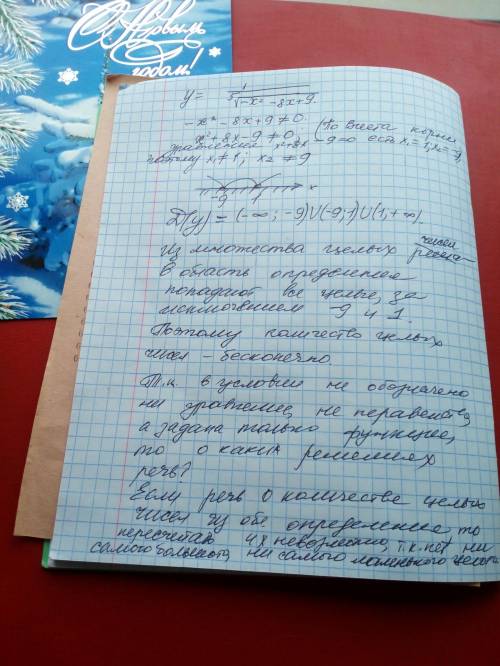 С Новым
годом!
y = 1/∛(-x² - 8x + 9)
-x² - 8x + 9 ≠ 0
x² + 8x - 9 ≠ 0 (По Виета корни
уравнения x² + 8x - 9 = 0 есть x₁ = 1; x₂ = -9,
поэтому x₁ ≠ 1; x₂ ≠ 9
-9 1 x
D(y) = (-∞; -9)∪(-9; 1)∪(1; +∞)
Из множества целых чисел
В область определения
попадают все целые, за
исключением -9 и 1.
Поэтому количество целых
чисел - бесконечно.
Т.к. в условии не обозначено
ни уравнение, не неравенство,
а задана только функция,
то о каких решениях
речь?
Если речь о количестве целых
чисел из обл определения то
пересчитать их невозможно, т.к. нет ни
самого большого, ни самого маленького целого